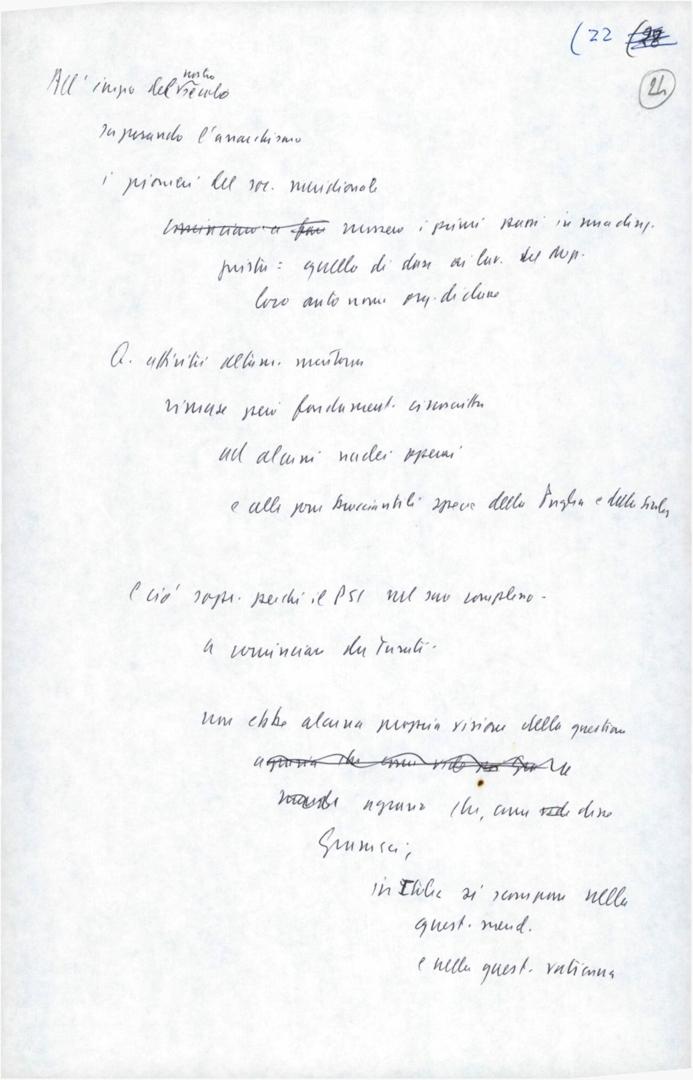 (22 (28
24
All' inizio del nostro secolo
superando l'anarchismo
i pionieri del soc. meridionale
cominciano a fare mossero i primi passi in una
giusta: quello di dare ai lav. del Mezz.
loro autonome org. di classe
Q. attività
rimase però fondament. circoscritta
ad alcuni nuclei operai
e alle zone bracciantili specie della Puglia e della Sicilia
E ciò sopr. perché il PSI nel suo complesso -
a cominciare da Turati -
non ebbe alcuna propria visione della questione
agraria che come
agraria che, come disse
Gramsci,
in Italia si scompone nella
quest. merid.
e nella quest. vaticana